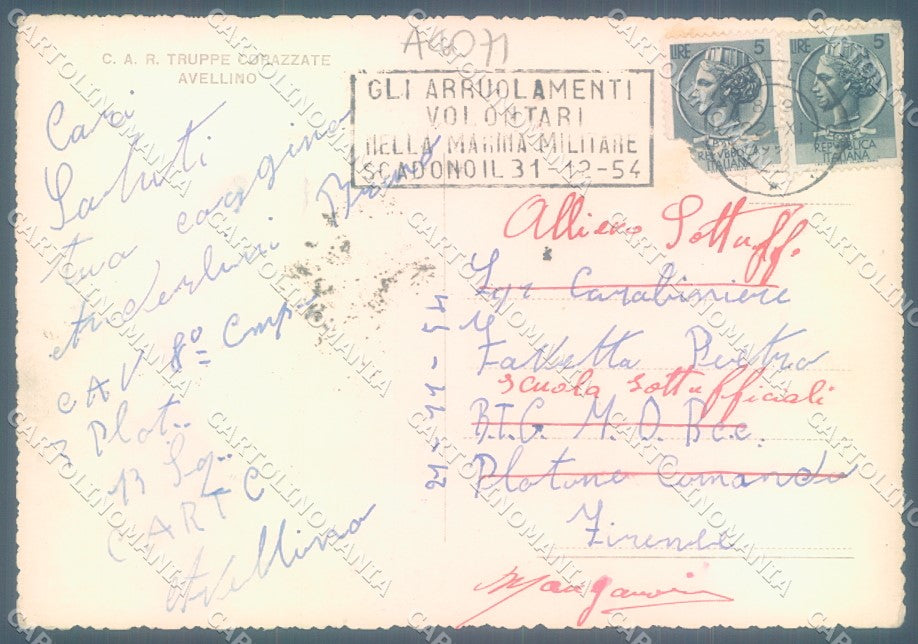 C. A. R. TRUPPE CORAZZATE
AVELLINO
A4071
GLI ARRUOLAMENTI
VOLONTARI
NELLA MARINA MILITARE
SCADONO IL 31-12-54
LIRE 5
REPVBBLICA
ITALIANA
LIRE 5
REPVBBLICA
ITALIANA
Cari
Saluti
tuo cangino
Anderlini Bruno
CAV 8º Cmp.
Plot.
13 Sq.
CARTC
Avellino
21-11-54
Allievo Sottuff.
Carabiniere
Favetta Pietro
scuola sottufficiali
B.T.G. M. O. Bcc.
Plotone Comando
Firenze
CARTOLINOMANIA